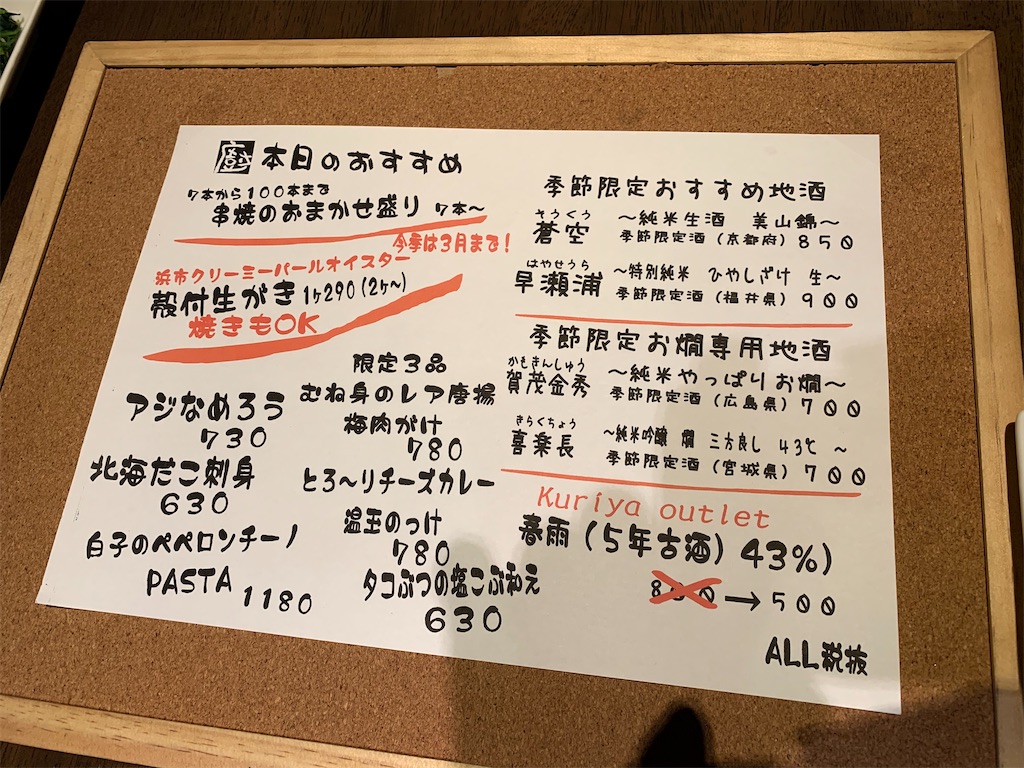 廚 本日のおすすめ
7本から100本まで
串焼のおまかせ盛り 7本〜
今季は3月まで!
浜市クリーミーパールオイスター
殻付生がき 1ヶ290(2ヶ〜)
焼きもOK
アジなめろう
730
北海だこ刺身
630
白子のペペロンチーノ
PASTA 1180
限定3品
むね身のレア唐揚
梅肉がけ
780
とろ〜りチーズカレー
温玉のっけ
780
タコぶつの塩こぶ和え
630
季節限定おすすめ地酒
そうくう
蒼空 〜純米生酒 美山錦〜
季節限定酒(京都府)850
はやせうら
早瀬浦 〜特別純米 ひやしざけ 生〜
季節限定酒(福井県)900
季節限定お燗専用地酒
かもきんしゅう
賀茂金秀 〜純米やっぱりお燗〜
季節限定酒(広島県)700
きらくちょう
喜楽長 〜純米吟醸 燗 三方良し 43℃ 〜
季節限定酒(宮城県)700
Kuriya outlet
春雨(5年古酒)43%)
→500
ALL税抜